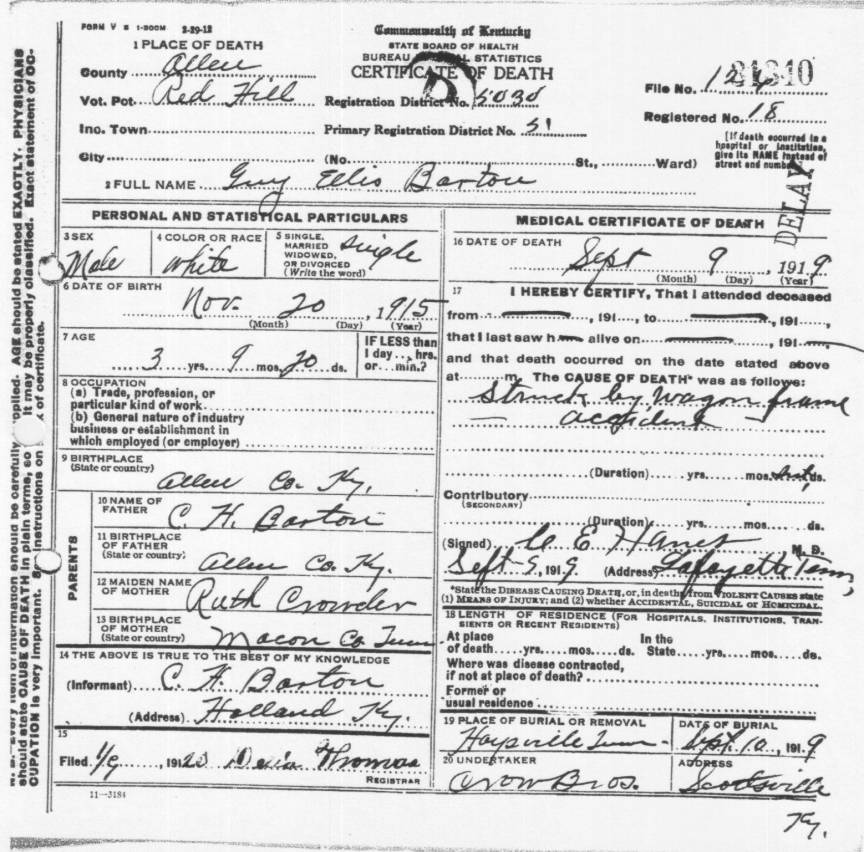 FORM V S 1-500M 2-29-12
Commonwealth of Kentucky
STATE BOARD OF HEALTH
BUREAU STATISTICS
CERTIFICATE OF DEATH
1 PLACE OF DEATH
County Allen
Vot. Pct. Red Hill
Inc. Town
City
Registration District No. 5030
Primary Registration District No. 51
(No. St., Ward)
File No.
Registered No. 18
[If death occurred in a
hospital or institution,
give its NAME instead of
street and number.]
DELAY
2 FULL NAME Guy Ellis Barton
PERSONAL AND STATISTICAL PARTICULARS
3 SEX
Male
4 COLOR OR RACE
White
5 SINGLE,
MARRIED
WIDOWED,
OR DIVORCED
(Write the word)
Single
6 DATE OF BIRTH
Nov. 20, 1915
(Month) (Day) (Year)
7 AGE
3 yrs. 9 mos. 20 ds.
IF LESS than
1 day... hrs.
or... min.?
8 OCCUPATION
(a) Trade, profession, or
particular kind of work
(b) General nature of industry
business or establishment in
which employed (or employer)
9 BIRTHPLACE
(State or country)
Allen Co. Ky.
PARENTS
10 NAME OF
FATHER
C. H. Barton
11 BIRTHPLACE
OF FATHER
(State or country)
Allen Co. Ky.
12 MAIDEN NAME
OF MOTHER
Ruth Crowder
13 BIRTHPLACE
OF MOTHER
(State or country)
Macon Co. Tenn
14 THE ABOVE IS TRUE TO THE BEST OF MY KNOWLEDGE
(Informant) C. H. Barton
(Address) Holland Ky.
15
Filed 1/9, 1920 Thomas
REGISTRAR
11-3184
MEDICAL CERTIFICATE OF DEATH
16 DATE OF DEATH
Sept 9, 1919
(Month) (Day) (Year)
17
I HEREBY CERTIFY, That I attended deceased
from , 191 , to , 191 ,
that I last saw h alive on , 191
and that death occurred on the date stated above
at m. The CAUSE OF DEATH* was as follows:
Struck by wagon frame
accident
(Duration) yrs. mos. ds.
Contributory
(SECONDARY)
(Duration) yrs. mos. ds.
(Signed) E M. D.
Sept 9, 1919 (Address) Lafayette Tenn
*State the DISEASE CAUSING DEATH, or, in deaths from VIOLENT CAUSES state
(1) MEANS OF INJURY; and (2) whether ACCIDENTAL, SUICIDAL OR HOMICIDAL.
18 LENGTH OF RESIDENCE (FOR HOSPITALS, INSTITUTIONS, TRAN-
SIENTS OR RECENT RESIDENTS)
At place
of death yrs. mos. ds.
In the
State yrs. mos. ds.
Where was disease contracted,
if not at place of death?
Former or
usual residence
19 PLACE OF BURIAL OR REMOVAL
Haysville Tenn
DATE OF BURIAL
Sept. 10, 1919
20 UNDERTAKER
Crow Bros.
ADDRESS
Scottsville
Ky.